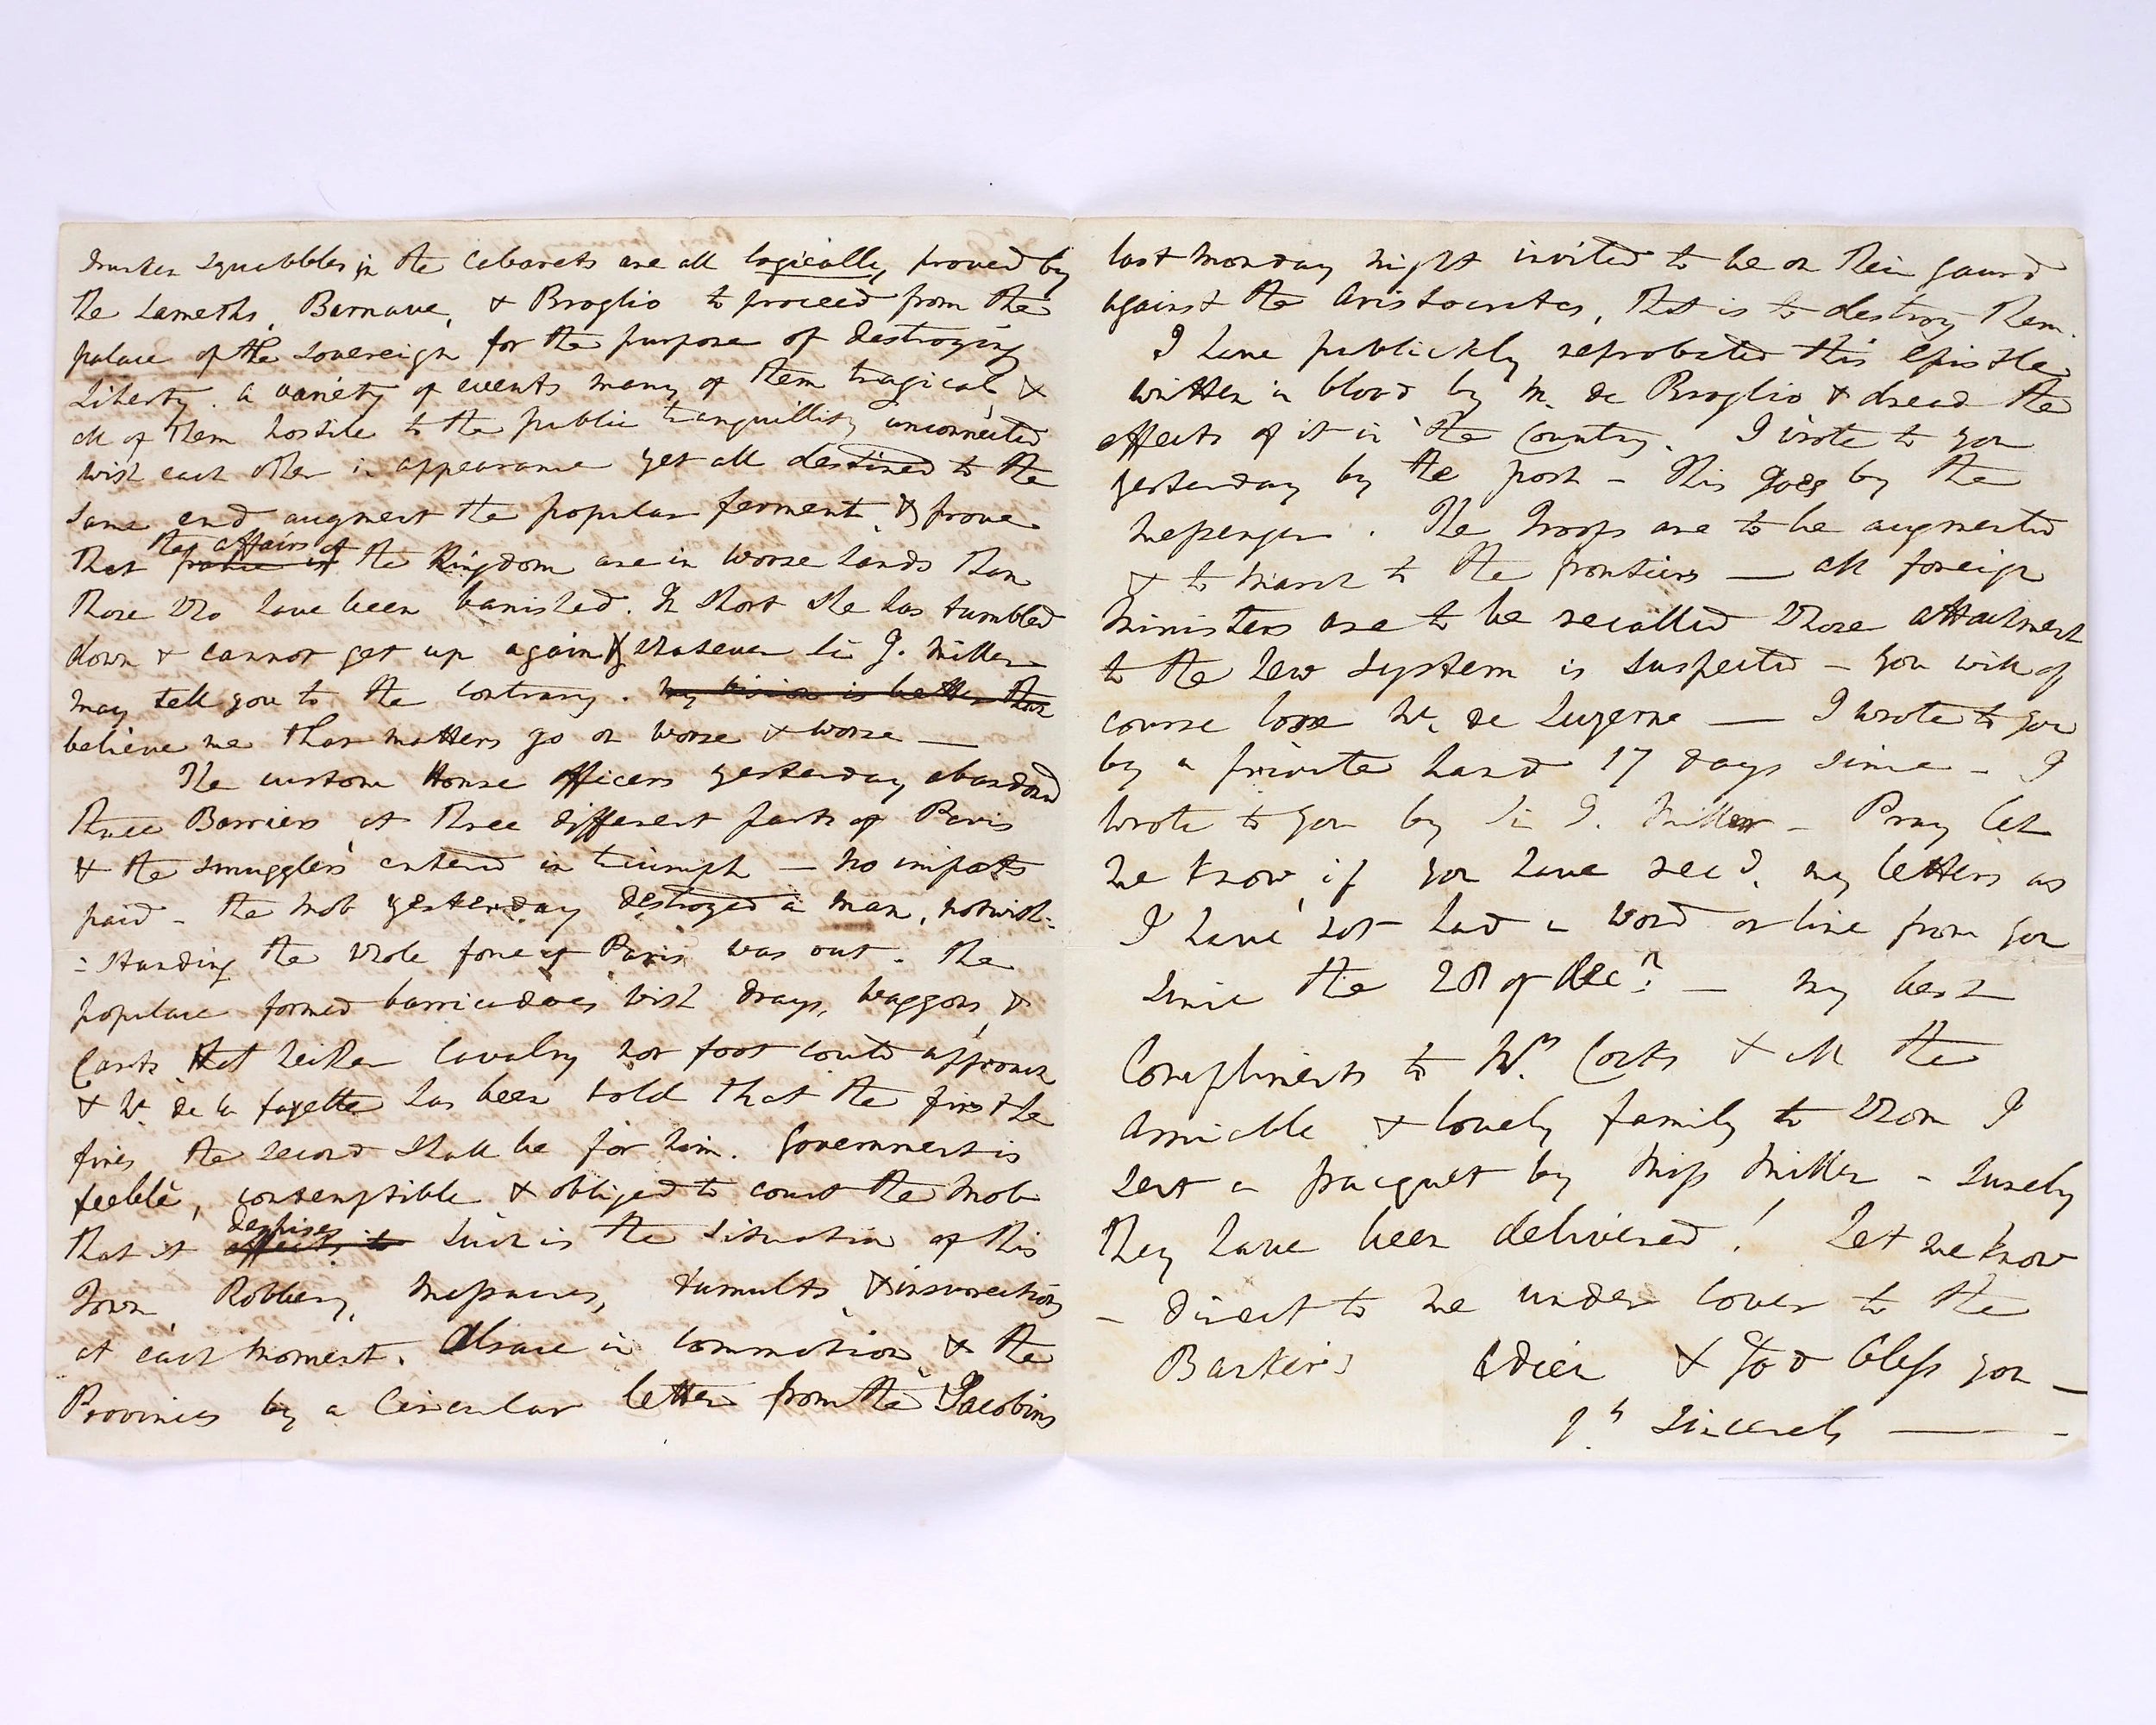 drunken squabbles in the Cabarets are all logically proved by
the Lameths, Barnave, & Broglio to proceed from the
palace of the Sovereign for the purpose of destroying
Liberty. a variety of events many of them tragical &
all of them hostile to the public tranquillity unconnected
with each other in appearance yet all destined to the
same end augment the popular ferment, & prove
that the affairs of the Kingdom are in worse hands than
those who have been banished. In short she has tumbled
down & cannot get up again whatever Sir J. Miller
may tell you to the contrary. my vision is better than
believe me that matters go on worse & worse —
The custom House officers yesterday abandond
three Barriers at three different parts of Paris
& the smugglers entered in triumph — no imposts
paid - the mob yesterday destroyed a man, notwith:
:standing the whole force of Paris was out. The
populace formed barricadoes with drays, waggons, &
Carts that neither Cavalry nor foot could approach
& M. de la fayette has been told that the first he
fires the second shall be for him. Government is
feeble, contemptible & obliged to court the mob
that it despises such is the situation of this
Town, Robbery, Massacres, tumults, & insurrections
at each moment. Alsace in commotion & the
Provinces by a Circular letter from the Jacobins
last monday night invited to be on their gaurd
against the Aristocrates, that is to destroy them.
I have publickly reprobated this Epistle
written in blood by M. de Broglio & dread the
effects of it in the Country. I wrote to you
yesterday by the post - this goes by the
messenger. The Troops are to be augmented
& to march to the frontiers — all foreign
Ministers are to be recalled whose attachment
to the new system is suspected - you will of
course lose M. de Luzerne — I wrote to you
by a private hand 17 days since - I
wrote to you by Sir J. Miller - Pray let
me know if you have recd. my letters as
I have not had a word or line from you
since the 28 of Decr. — my best
Compliments to Mrs. Coutts & all the
amiable & lovely family to whom I
sent a pacquet by Miss Miller - surely
they have been delivered! Let me know
- direct to me under cover to the
Bankers Adieu & God bless you —
Yrs. Sincerely ———